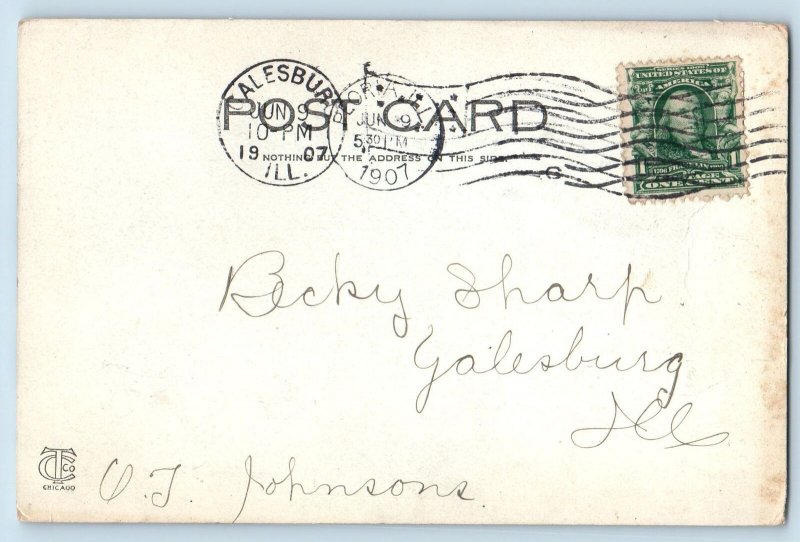 GALESBURG
JUN 9
10 PM
19 07
ILL.
PEORIA, ILL.
JUN 9
5 30 PM
1907
POST CARD
NOTHING BUT THE ADDRESS ON THIS SIDE.
SERIES 1902
UNITED STATES OF
AMERICA
POSTAGE
1 ONE CENT 1
Becky Sharp.
Galesburg
Ill
O. J. Johnsons
CTCo
CHICAGO